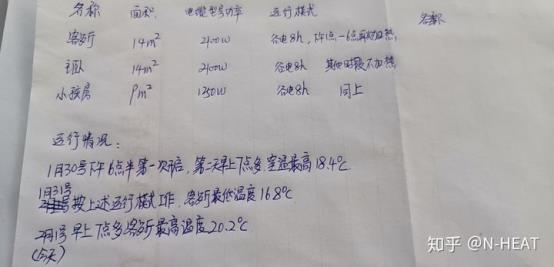 名称 面积 电缆型号功率 运行模式
客厅 14m² 2400W 谷电8h,下午点-6点再加热
主卧 14m² 2400W 谷电8h 其他时段不加热
小孩房 9m² 1250W 谷电8h 同上
名称
运行情况:
1月30号下午6点半第一次开启,第二天早上7点多,室温最高18.4℃
1月31号
按上述运行模式工作,客厅最低温度16.8℃
2月1号早上7点多客厅最高温度20.2℃
(今天)
知乎 @N-HEAT